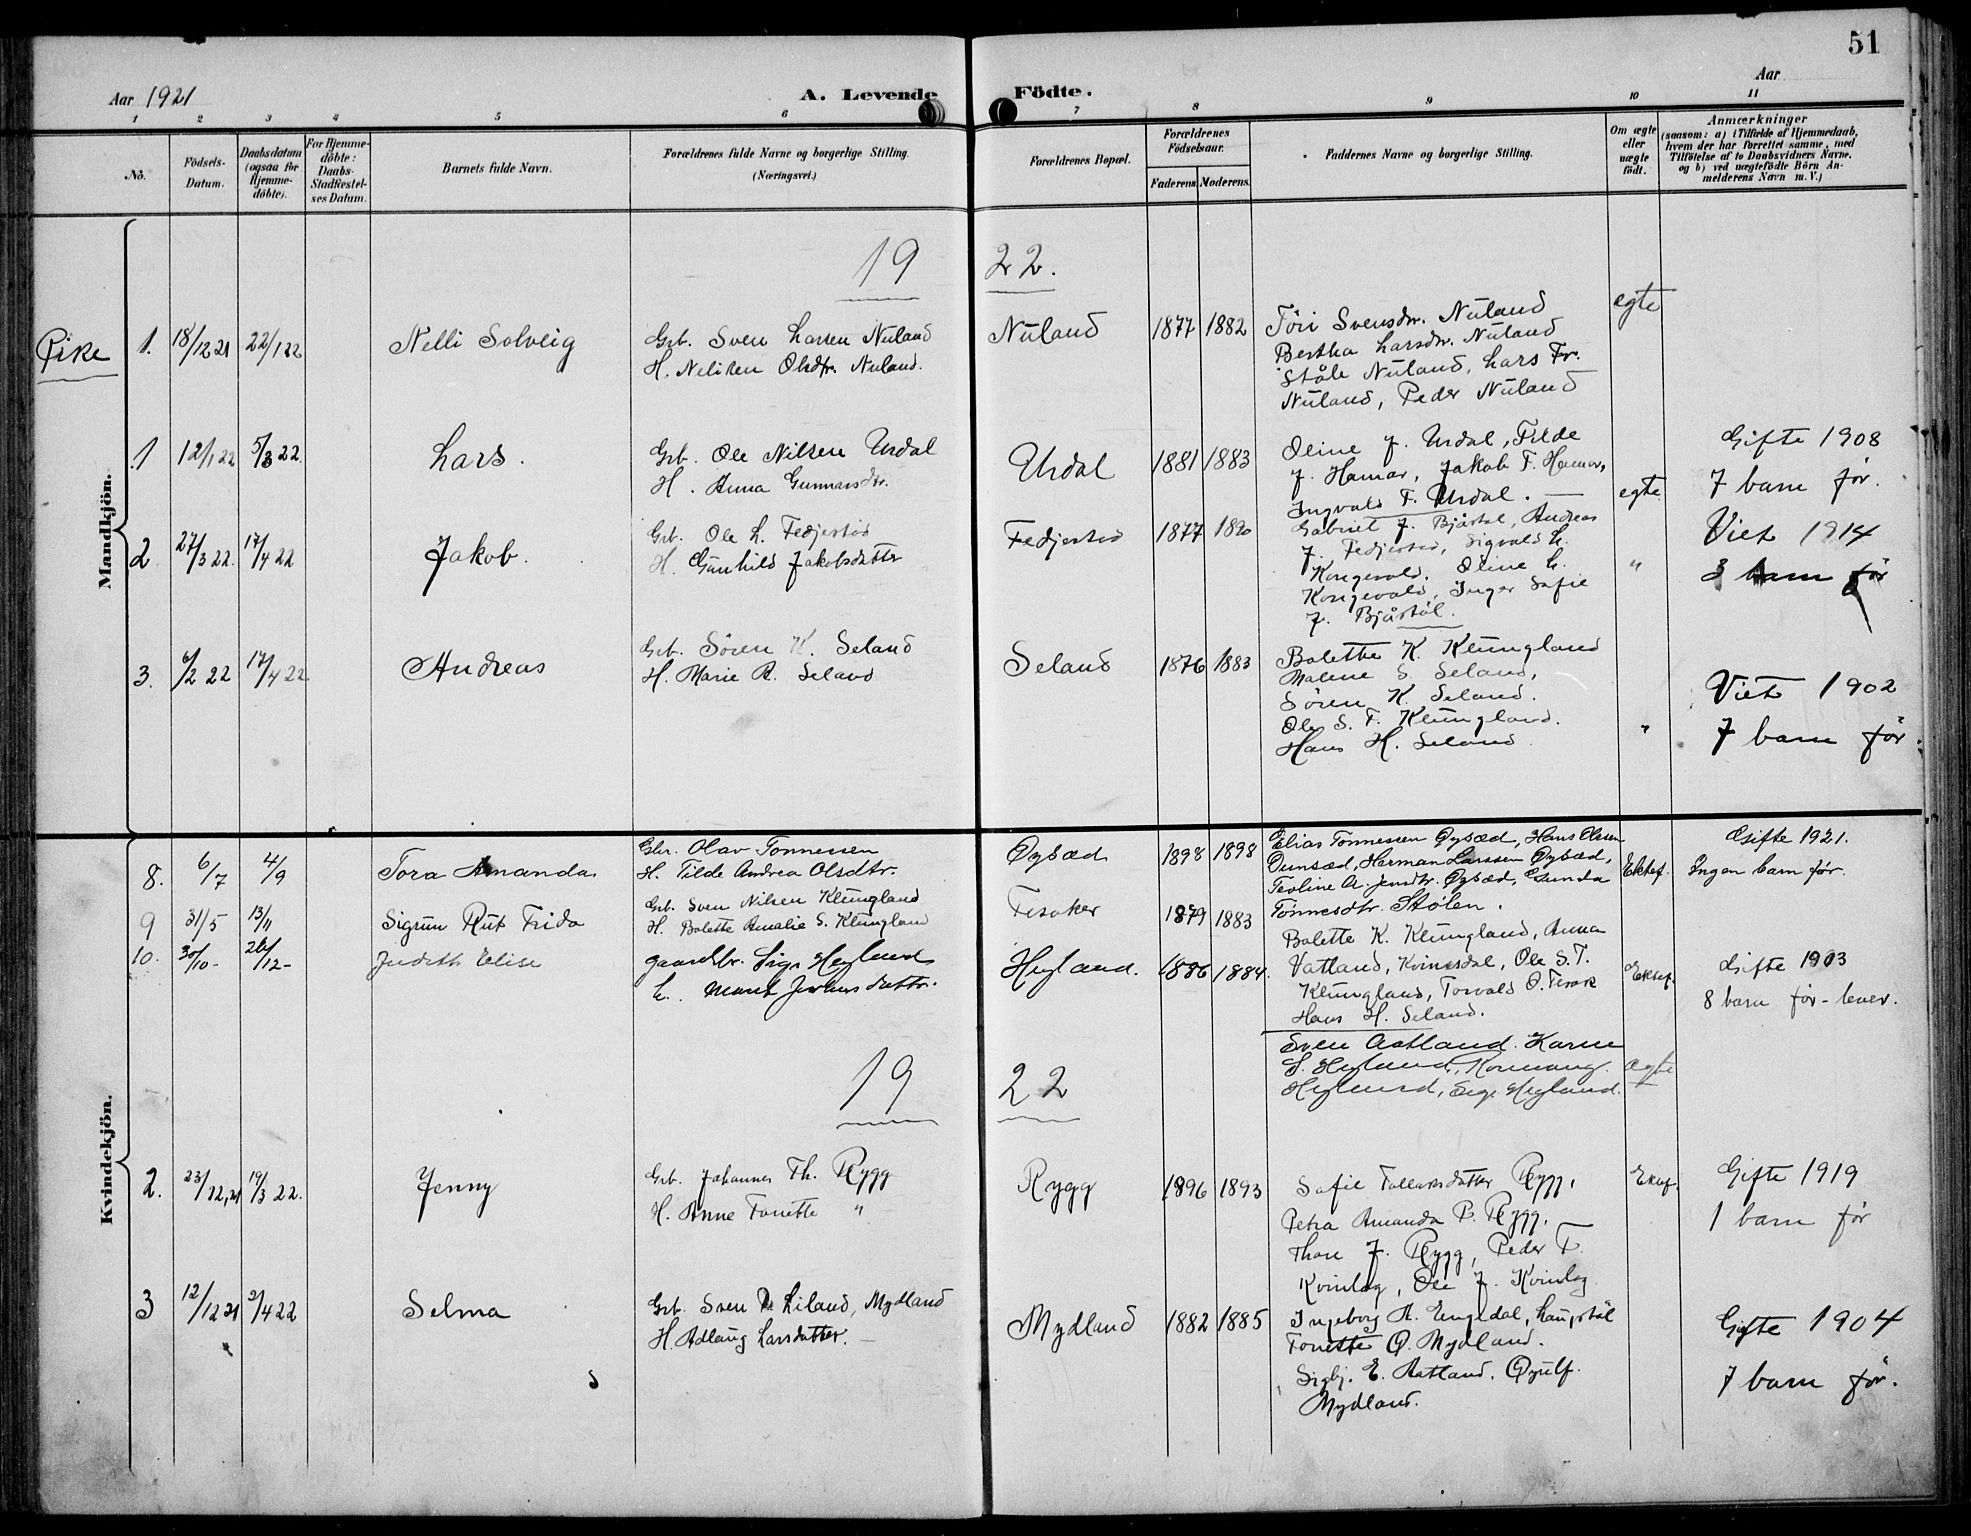 51
Aar 1921
A. Levende Födte.
Aar
1 2 3 4 5 6 7 8 9 10 11
No.
Födsels-Datum.
Daabsdatum (ogsaa for Hjemme-döbte).
For Hjemme-döbte: Daabs-Stadfæstel-ses Datum.
Barnets fulde Navn.
Forældrenes fulde Navne og borgerlige Stilling.
(Næringsvei.)
Forældrenes Bopæl.
Forældrenes Födselsaar.
Faderens. Moderens.
Faddernes Navne og borgerlige Stilling.
Om ægte eller uægte födt.
Anmærkninger
(saasom: a) i Tilfælde af Hjemmedaab, hvem der har forrettet samme, med Tilföielse af to Daabsvidners Navne, og b) ved uægtefödte Börn An-melderens Navn m. V.)
Mandkjön.
19 22.
Pike 1. 18/12 21 22/1 22 Nelli Solveig
Grb. Sven Larsen Nuland
H. Neliken Olsdtr. Nuland.
Nuland 1877 1882
Töri Svensdtr. Nuland
Bertha Larsdtr. Nuland
Ståle Nuland, Lars Fr.
Nuland, Peder Nuland
egte
1 12/1 22 5/3 22. Lars.
Grb. Ole Nilsen Urdal
H. Anna Gunnarsdtr.
Urdal 1881 1883
Oline J. Urdal, Tilde
J. Hamar, Jakob T. Hamar,
Ingvald T. Urdal.
egte
Gifte 1908
7 barn før.
2 27/3 22. 17/4 22 Jakob.
Grb. Ole L. Fedjestad
H. Gunhild Jakobsdatter
Fedjestad 1877 1890
Gabriel J. Bjårstøl, Andreas
J. Fedjestad, Sigvald L.
Kongevold. Oline L.
Kongevold, Inger Sofie
J. Bjårstöl.
"
Viet 1914
3 barn før
3. 6/2 22 17/4 22 Andreas
Grb. Sören K. Seland
H. Marie R. Seland
Seland 1876 1883
Bolette K. Klungland
Malene S. Seland,
Sören K. Seland.
Ole S. T. Klungland.
Hans H. Seland.
"
Viet 1902
7 barn før.
Kvindekjön.
8. 6/7 4/9 Tora Amanda
Gbr. Olav Tonnessen
H. Tilde Andrea Olsdtr.
Øysæd 1898 1898
Elias Tonnessen Øysæd, Hans Olsen
Dunsæd, Herman Larssen Øysæd,
Teoline A. Jensdtr. Øysæd, Gunda
Tønnesdtr. Stølen.
Ektef.
Gifte 1921.
Ingen barn før.
9 31/5 13/11 Sigrun Rut Frida
Grb. Sven Nilsen Klungland
H. Bolette Amalie S. Klungland
Tesaker 1879 1883
Bolette K. Klungland, Anna
Vatland, Kvinesdal, Ole S. T.
Klungland, Torvald O. Tesak
Hans H. Seland.
Ektef.
Gifte 1903
8 barn før - lever.
10. 30/10- 26/12- Judith Elise
gaardbr. Sigv Hegland
Hegland. 1886 1884.
Sven Aatland. Karen
S. Hegland,
Hegland, Hegland.
ægte
19 22
2. 23/12, 21 19/3 22. Jenny
Grb. Johannes Th. Rygg
H. Anne Tonette "
Rygg 1896 1893
Sofie Tallaksdatter Rygg,
Petra Amanda P. Rygg.
Thore J. Rygg, Peder T.
Kvinlog, Ole J. Kvinlog.
Ektef.
Gifte 1919
1 barn før
3 12/12 21 2/4 22 Selma
Grb. Sven Liland, Mydland
H. Adlaug Larsdatter.
Mydland 1882 1885
Ingeborg A. Engedal,
Tonette O. Mydland.
Sigbj. E. Aatland. Øyulf.
Mydland.
Gifte 1904
7 barn før.